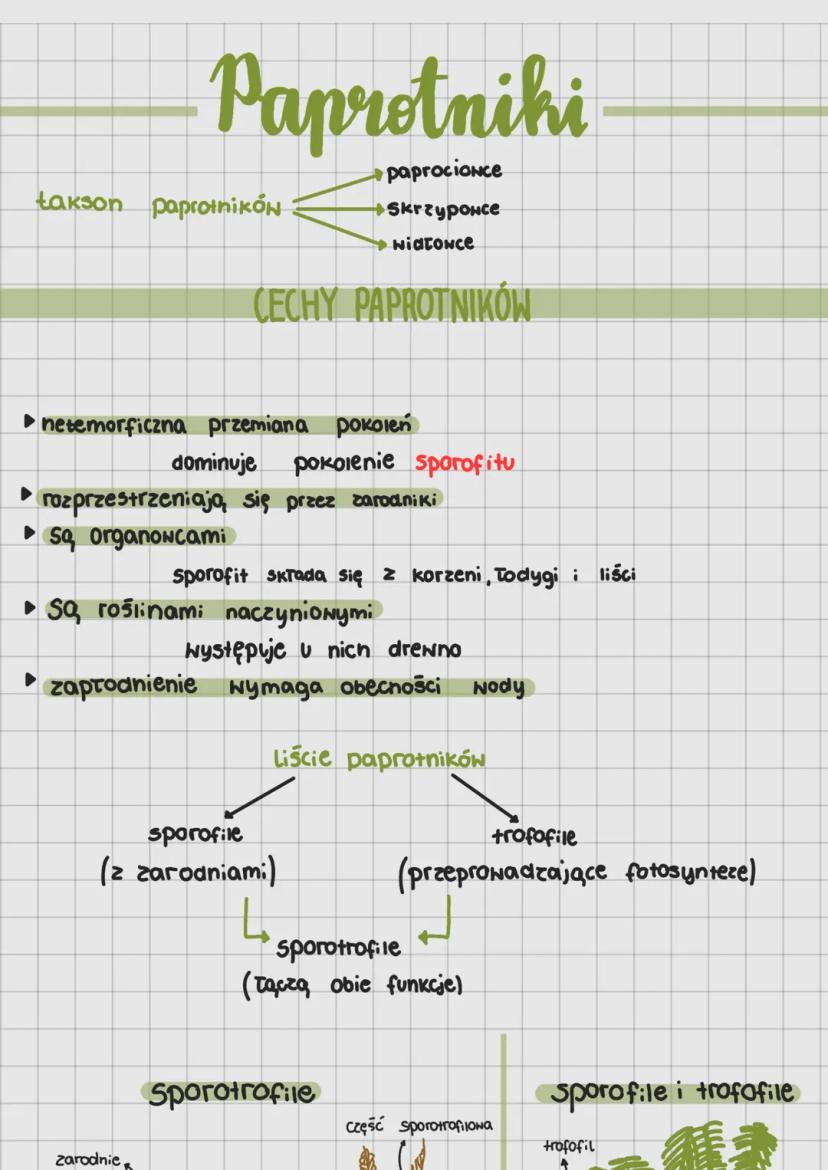 Paprotniki
takson paprotników
paprociowce
skrzypowce
widłowce
CECHY PAPROTNIKÓW
hetemorficzna przemiana pokoleń
dominuje pokolenie sporofitu
rozprzestrzeniają się przez zarodniki
są organowcami
sporofit składa się z korzeni, łodygi i liści
są roślinami naczyniowymi
występuje u nich drewno
zapłodnienie wymaga obecności wody
liście paprotników
sporofile
trofofile
(z zarodniami)
(przeprowadzające fotosyntezę)
sporotrofile
(łączą obie funkcje)
sporotrofile
sporofile i trofofile
część sporotrofilowa
trofofil
zarodnie